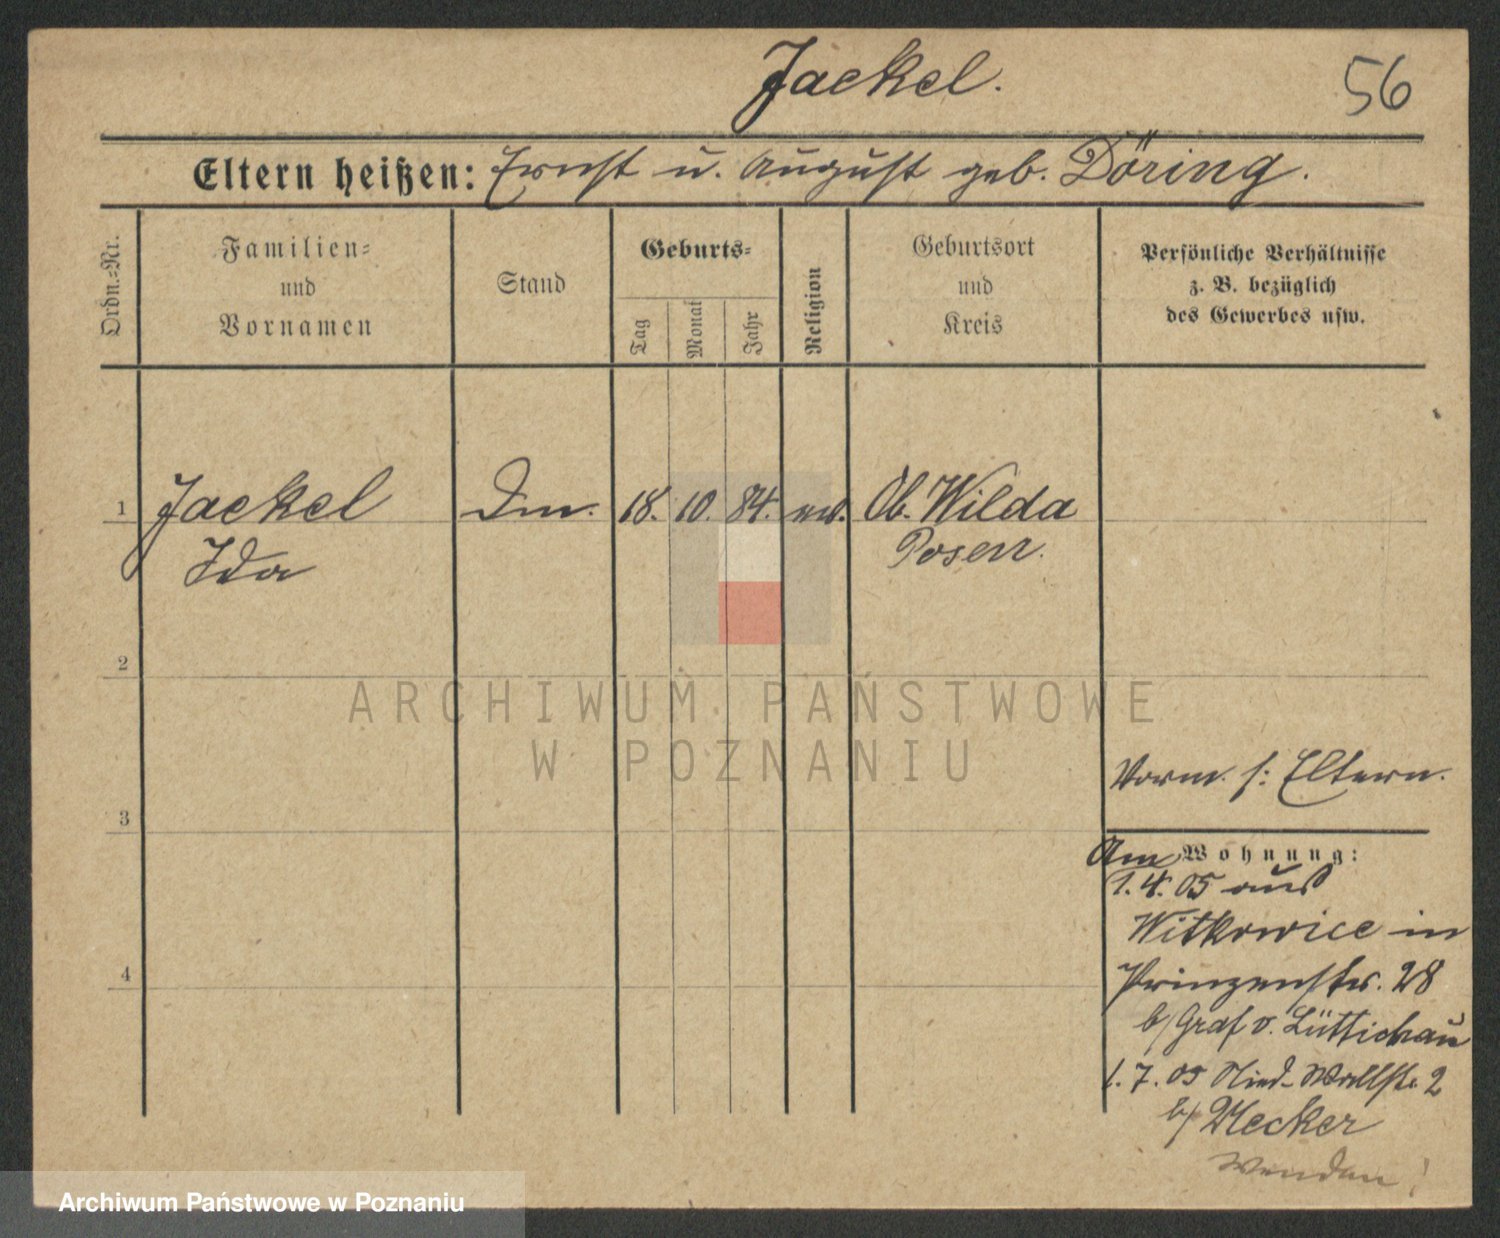 Jaekel.
56
Eltern heißen: Ernst u. August geb. Döring.
Ordn.=Nr.
Familien=
und
Vornamen
Stand
Geburts=
Tag
Monat
Jahr
Religion
Geburtsort
und
Kreis
Persönliche Verhältnisse
z. B. bezüglich
des Gewerbes usw.
1 Jaekel Dm. 18. 10. 84. ev. Ob. Wilda
Ida Posen.
2
ARCHIWUM PAŃSTWOWE
W POZNANIU
Vorm. s: Eltern.
3
Am Wohnung:
1. 4. 05 aus
Witkowice in
4
Prinzenstr. 28
b/ Graf v. Lüttichau
1. 7. 05 Nied. Wallstr. 2
b/ Mecker
Wenden!
Archiwum Państwowe w Poznaniu